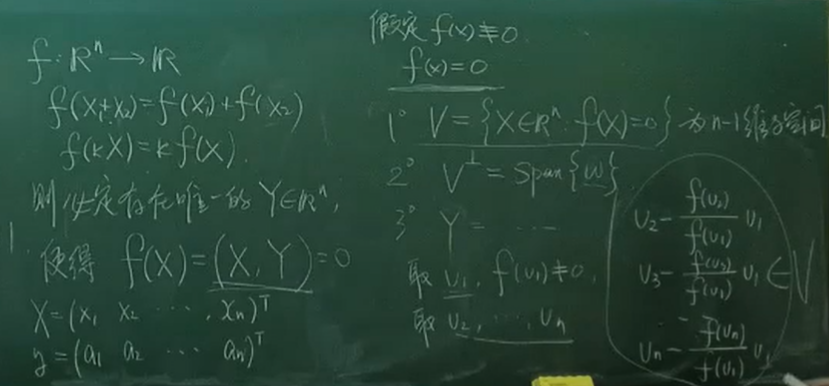 f: ℝⁿ → ℝ
f(x₁+x₂)=f(x₁)+f(x₂)
f(kX)=kf(X).
则必定存在唯一的 Y∈ℝⁿ,
使得 f(X)=(X,Y)=0
X=(x₁ x₂ ⋯, xₙ)ᵀ
y=(a₁ a₂ ⋯ aₙ)ᵀ
假定 f(x)≢0.
f(x)=0
1° V={X∈ℝⁿ: f(X)=0} 为n-1维子空间
2° V^⊥=Span{w}.
3° Y= ⋯
取 υ₁, f(υ₁)≠0,
取 υ₂, ⋯, υₙ
υ₂-f(υ₂)/f(υ₁) υ₁
υ₃-f(υ₃)/f(υ₁) υ₁ ∈V
⋯
υₙ-f(υₙ)/f(υ₁) υ₁